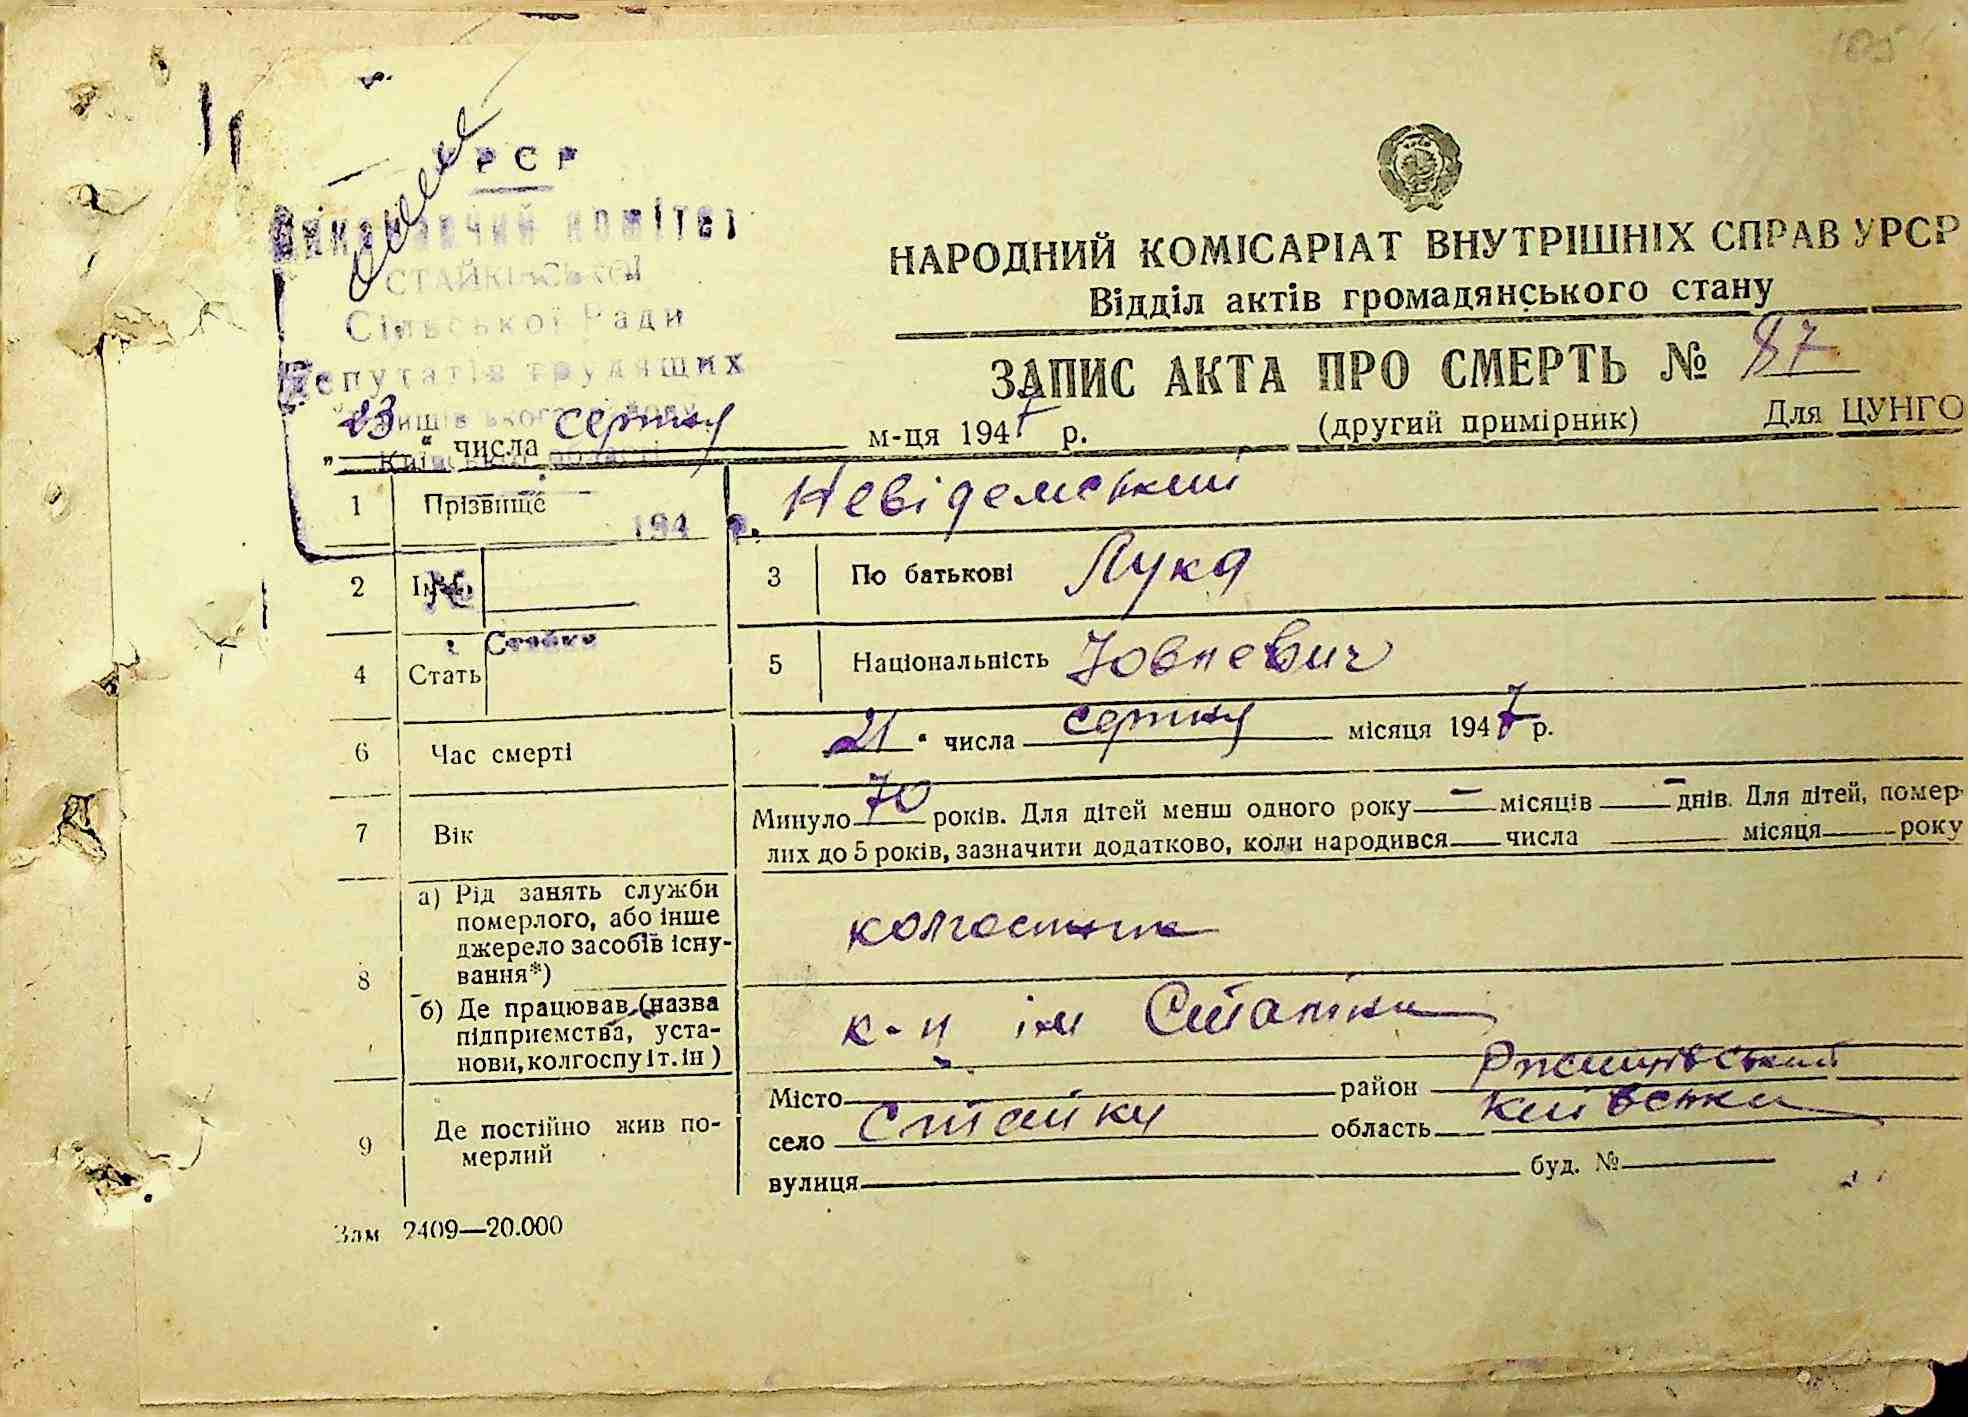 УРСР
Виконавчий комітет
СТАЙКІВСЬКОЇ
Сільської Ради
Депутатів трудящих
Київської області
194 р.
№
с. Стайки
НАРОДНИЙ КОМІСАРІАТ ВНУТРІШНІХ СПРАВ УРСР
Відділ актів громадянського стану
ЗАПИС АКТА ПРО СМЕРТЬ № 87
(другий примірник) Для ЦУНГО
„23“ числа серпня м-ця 1947 р.
1 Прізвище Невідемський
2 Ім'я 3 По батькові Лука
4 Стать 5 Національність Йовневич
6 Час смерті 21 “ числа серпня місяця 1947 р.
7 Вік Минуло 70 років. Для дітей менш одного року — місяців — днів. Для дітей, помер-
лих до 5 років, зазначити додатково, коли народився числа місяця року
8 а) Рід занять служби
померлого, або інше
джерело засобів існу-
вання*)
колгоспник
б) Де працював (назва
підприємства, уста-
нови, колгоспу і т. ін)
к-п ім Сталіна
9 Де постійно жив по-
мерлий
Місто район Ржищівський
село Стайки область Київська
вулиця буд. №
Зам 2409—20.000